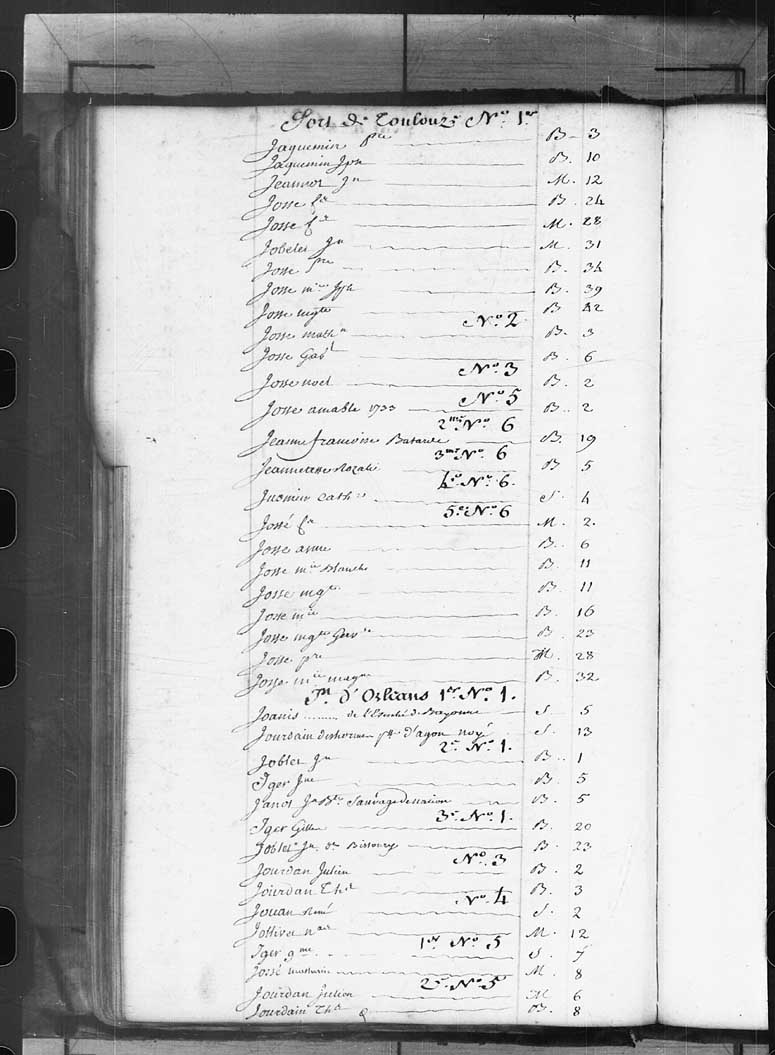 Fort de Toulouze No. 1er
Jaquemin pre B. 3
Jaquemin Jph B. 10
Jeannot Jn M. 12
Josse B. 24
Josse M. 28
Jobelet Jn M. 31
Josse pre B. 34
Josse mie Jph B. 39
Josse mgte B. 42
No. 2
Josse math B. 3
Josse Gabl B. 6
No. 3
Josse noel B. 2
No. 5
Josse amable 1733 B. 2
2me No. 6
Jeanne francoise Batarde B. 19
3me No. 6
Jeannetasse Rozalie B. 5
4e. No. 6.
Cathe S. 4
5e. No. 6
Jossé M. 2.
Josse anne B. 6
Josse mie Blanche B. 11
Josse mgte B. 11
Josse mie B. 16
Josse mgte B. 23
Josse pre M. 28
Josse mie magne B. 32
Pt. D'Orleans 1er No. 1.
Joanis de l'Eveché de Bayonne S. 5
Jourdain d'agon noyé S. 13
2e. No. 1.
Joblet Jn B. 1
Iger Jne B. 5
Janot Jn Bte Sauvage de nation B. 5
3e. No. 1.
Iger Gillen B. 20
Joblet Jn. dt Bissoury B. 23
No. 3
Jourdan Julien B. 2
Jourdan Ths B. 3
No. 4
Jouan René S. 2
Jollivet nas M. 12
1er No. 5
Iger gme S. 7
Jossé mathurin M. 8
2e. No. 5
Jourdan Julien M. 6
Jourdain Ths B. 8